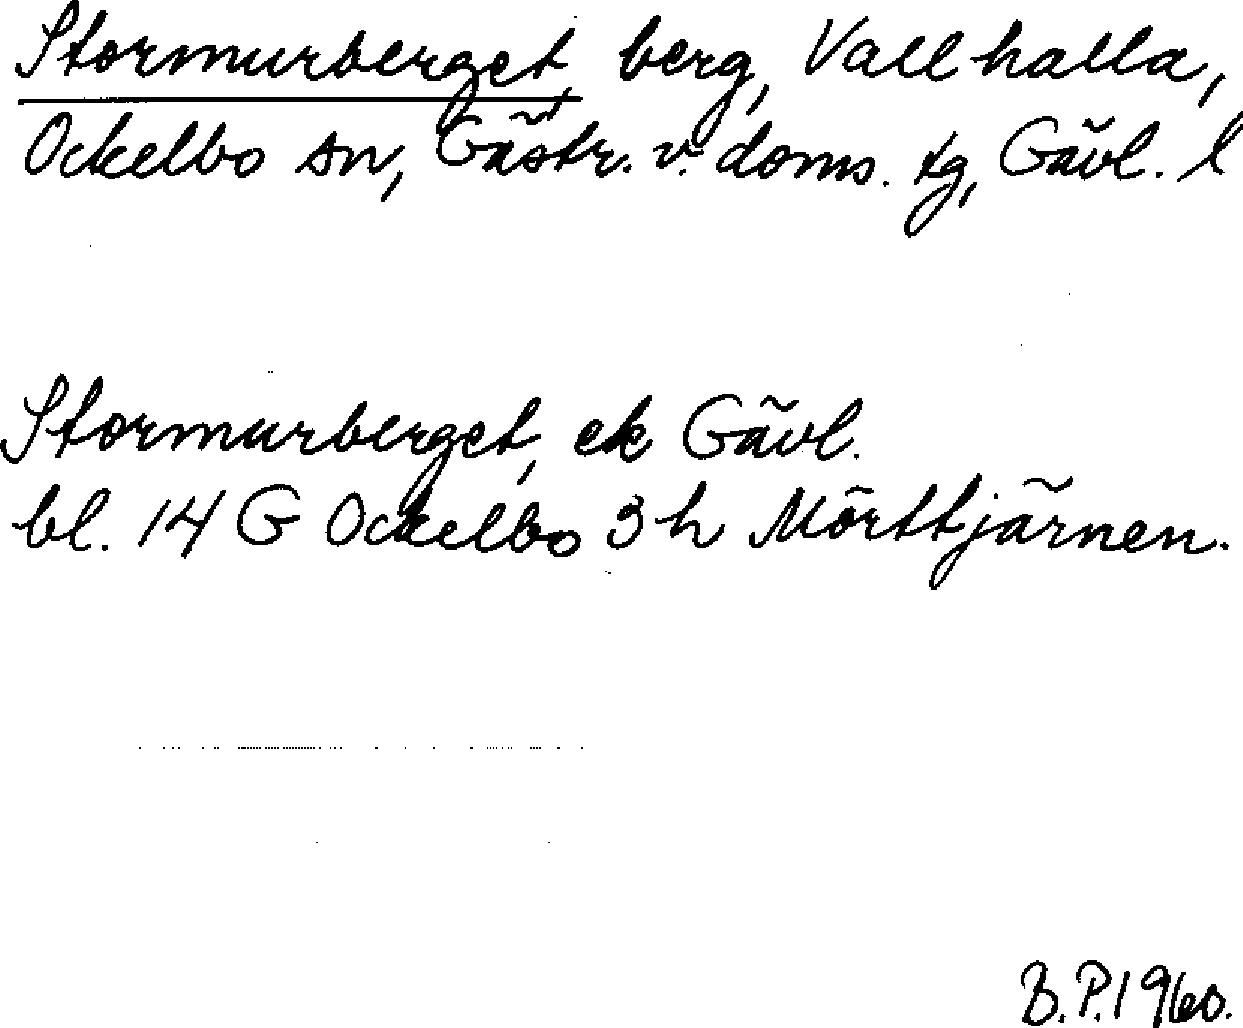 Stormurberget, berg, Vallhalla,
Ockelbo sn, Gästr. v. doms. tg, Gävl. l
Stormurberget, ek Gävl.
bl. 14 G Ockelbo 3 h Mörttjärnen.
B.P. 1960.